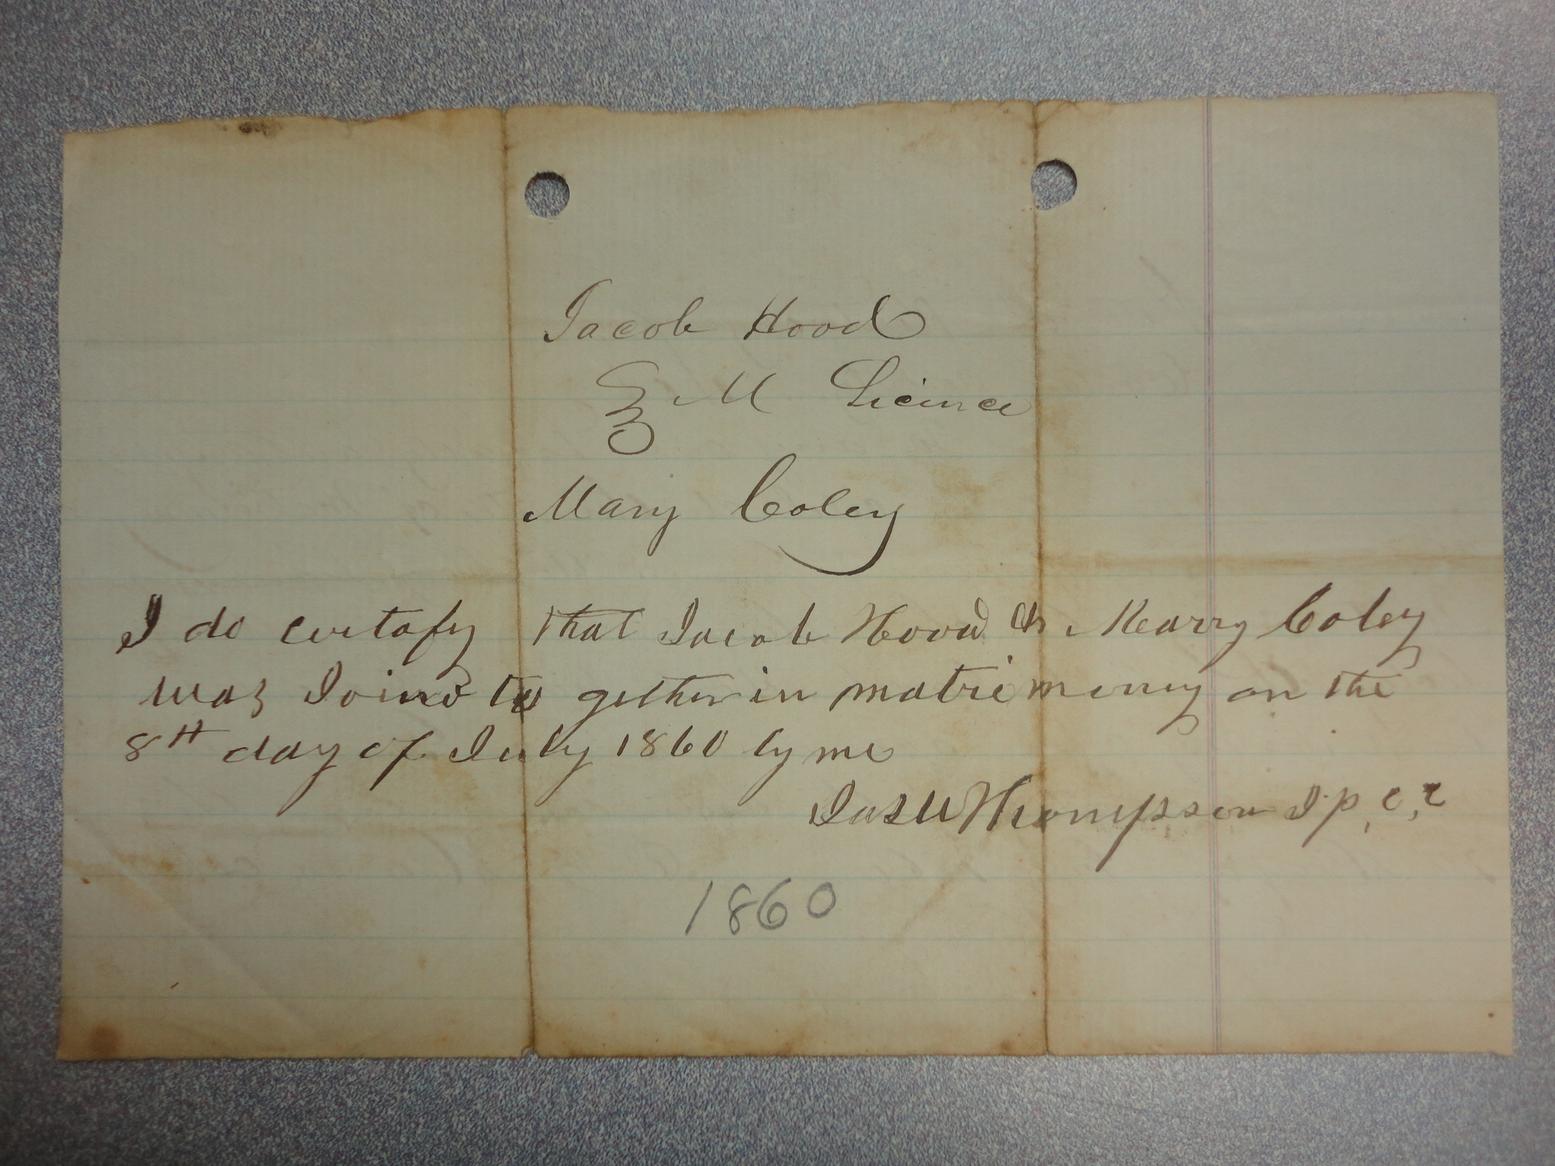 Jacob Hood
& M Licince
Mary Coley
I do certafy that Jacob Hood & Marry Coley
was Joind to gether in matrimony on the
8th day of July 1860 by me
Jas W Thompson J. p, c, c
1860